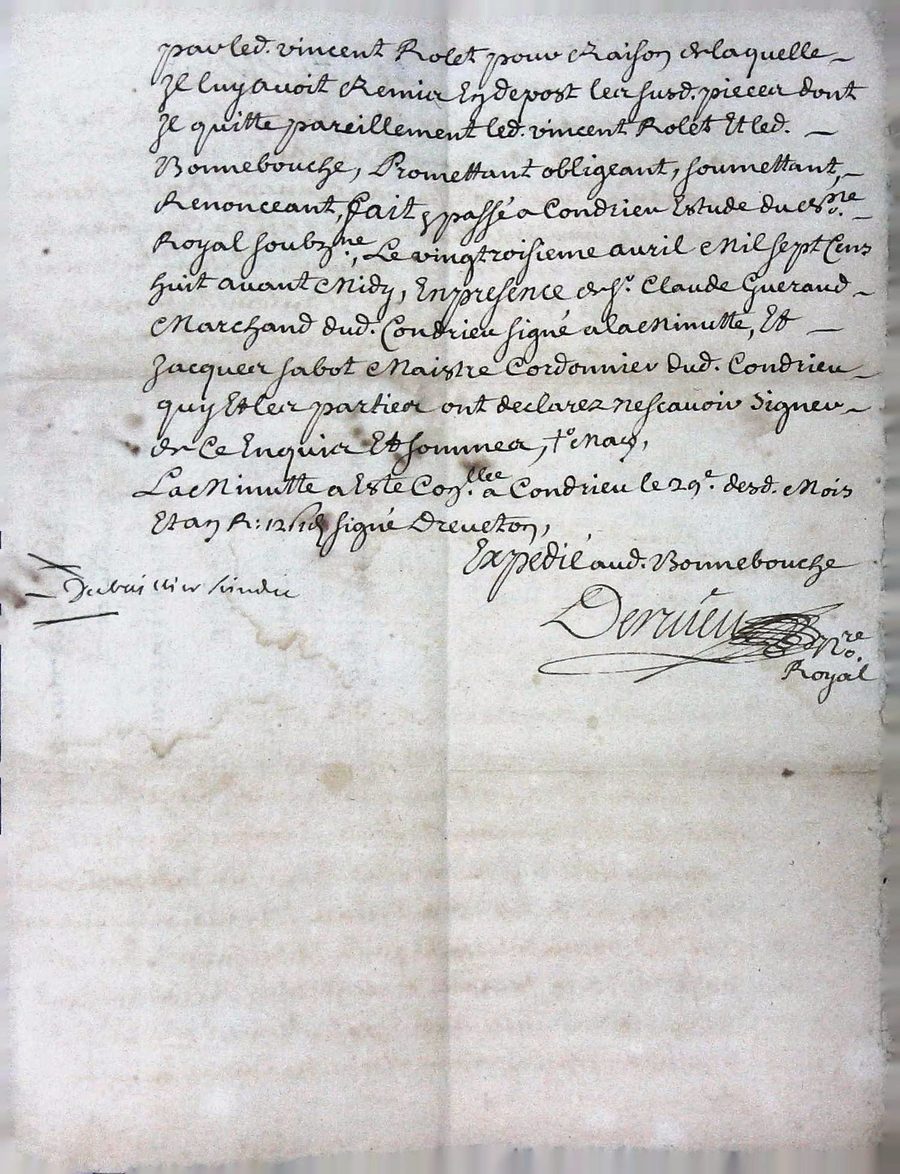 par led. vincent Rolet pour Raison de laquelle
Il luy avoit Remis En depost les susd. pieces dont
Il quitte pareillement led. vincent Rolet Et led.
Bonnebouche, Promettant obligeant, soumettant,
Renonceant, fait & passé a Condrieu Estude du no.re
Royal soubz.ne, Le vingtroisieme avril Mil sept Cens
huit avant Midy, En presence de Sr. Claude Gueraud
Marchand dud. Condrieu signé a la Minutte, Et
Jacques sabot Maistre Cordonnier dud. Condrieu
quy Et les parties ont declarez ne scavoir Signer
de Ce Enquis Et sommes,
La Minutte a Este Con.llée a Condrieu le 29e. desd. Mois
Et an R: signé Dreveton,
Expedié aud. Bonnebouche
Derrieu
No.re
Royal